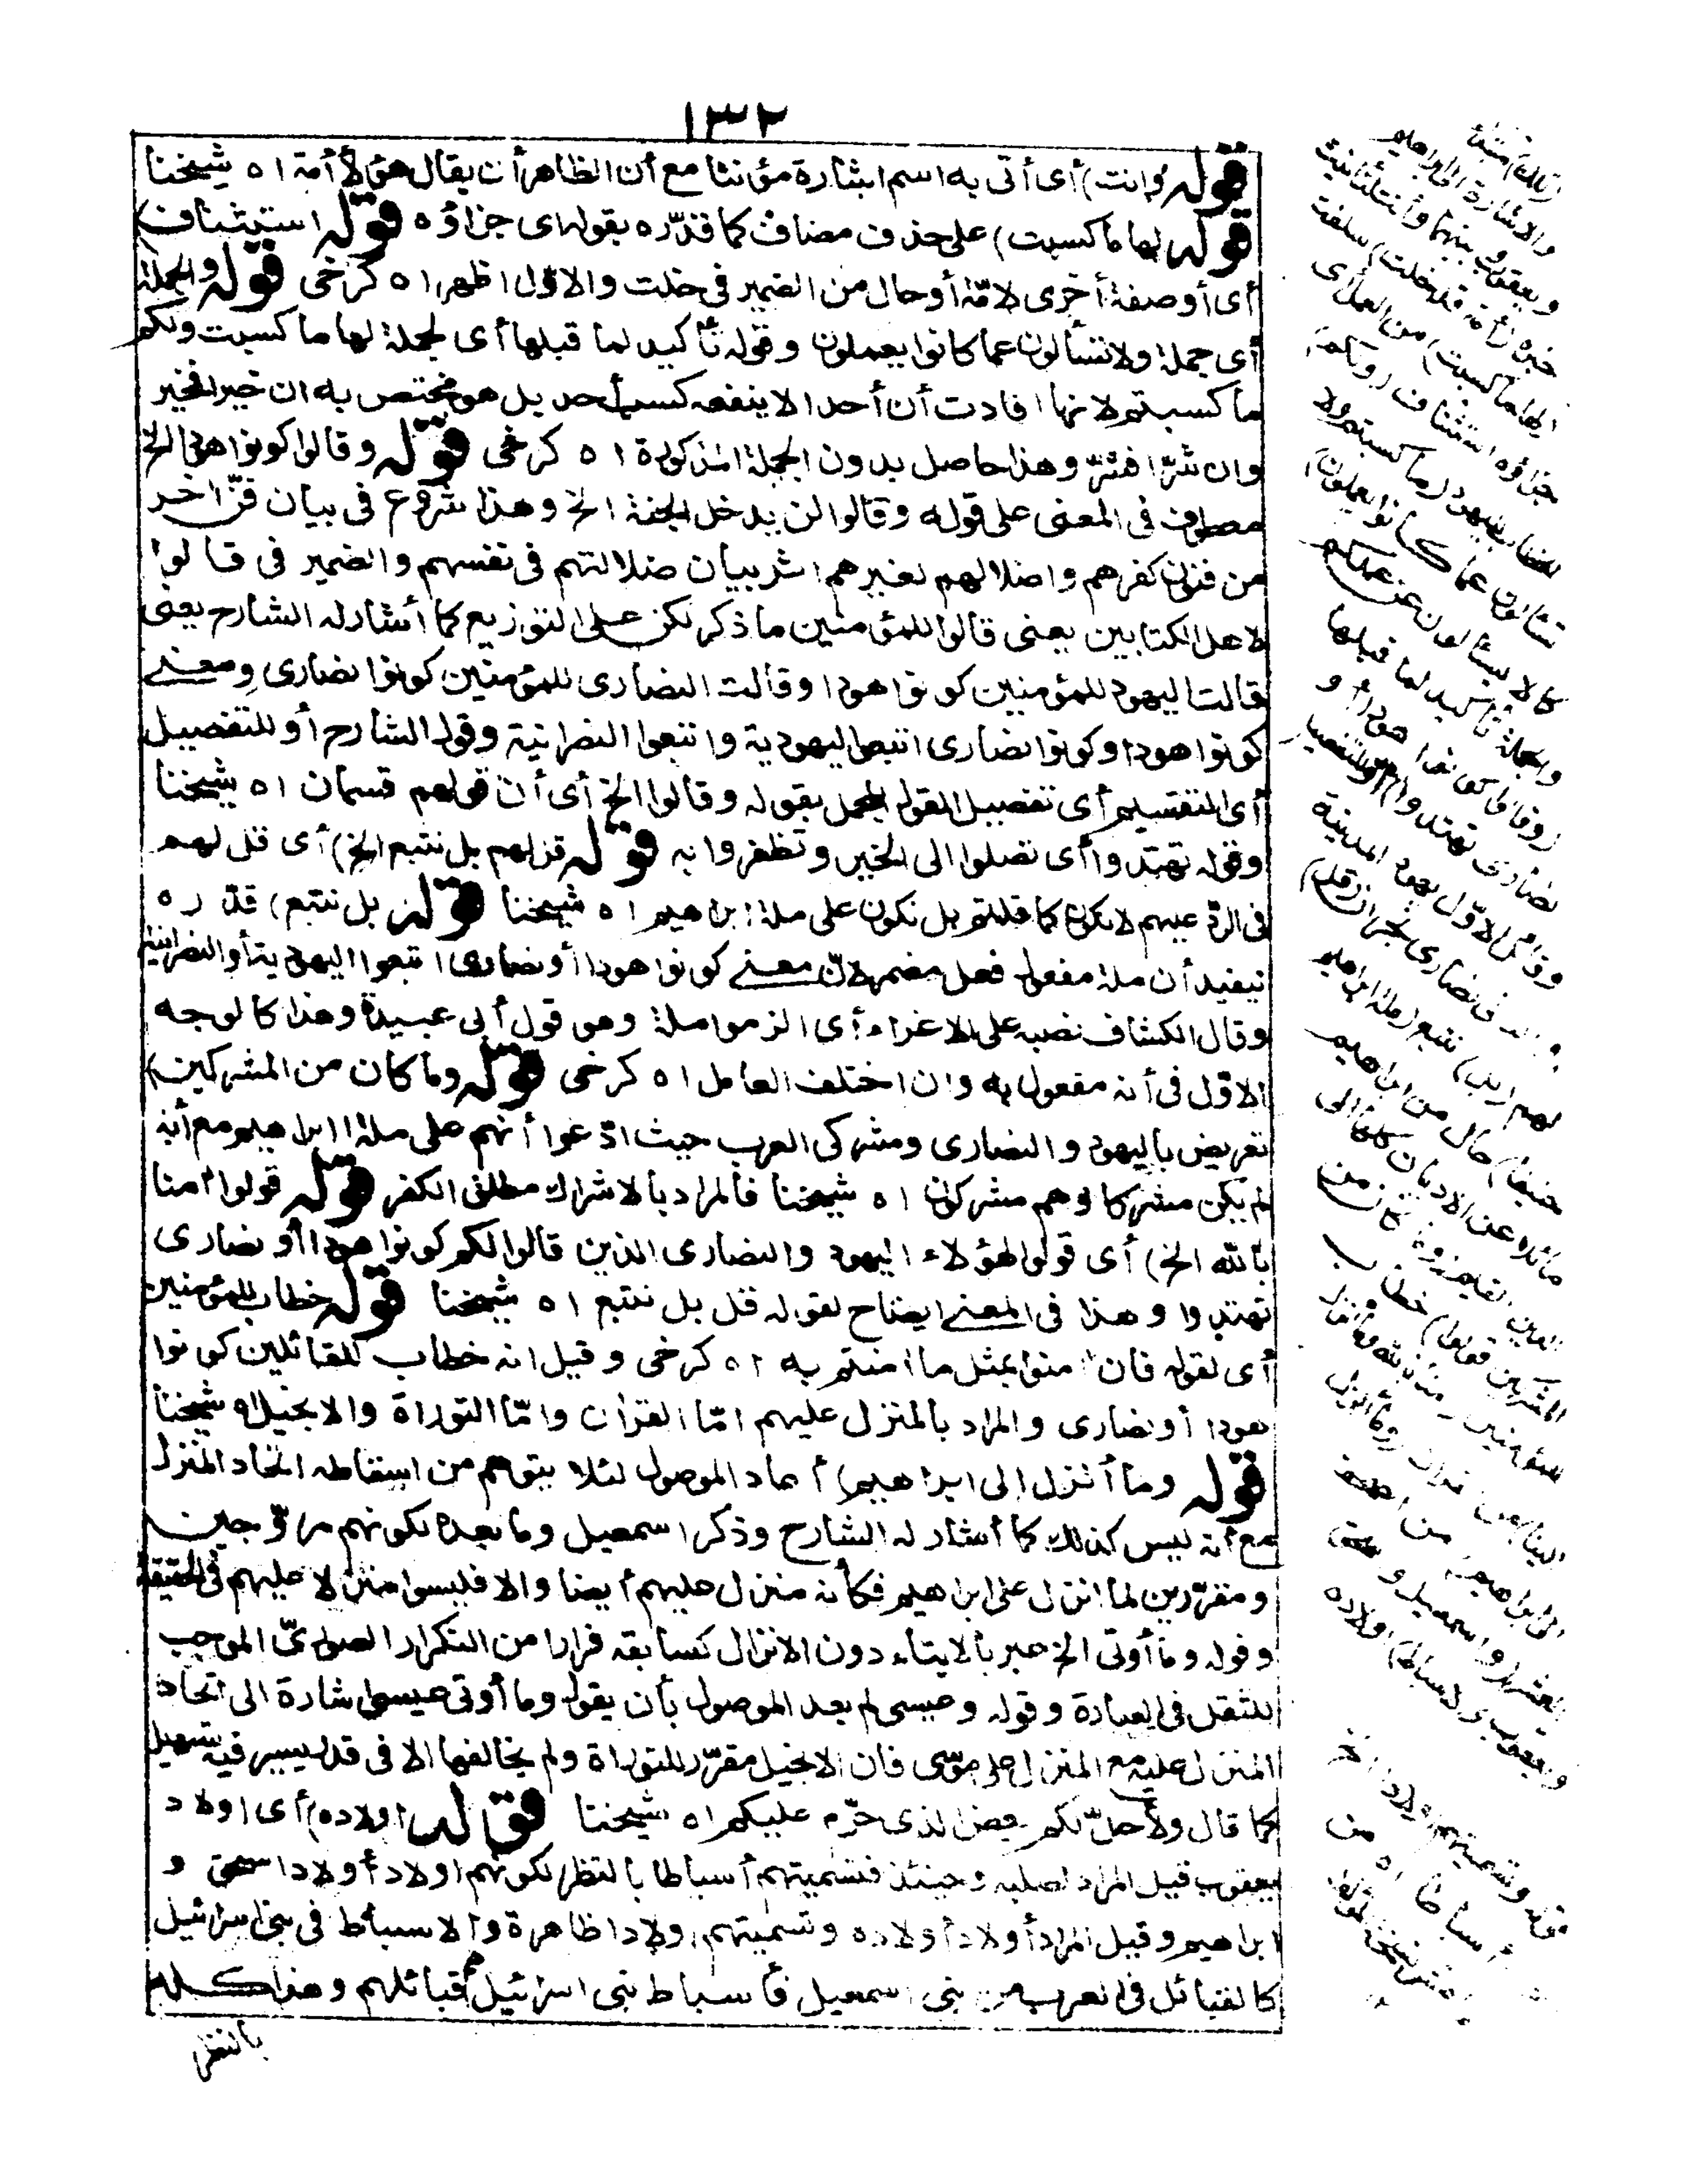 ١٣٢
قوله وانث) أى أتى به اسم اشارة مؤنثا مع أن الظاهر أن يقال هؤلاء أمة اه شيخنا
قوله لها ما كسبت) على حذف مضاف كما قدّره بقوله اى جزاؤه قوله استئناف)
أى أو صفة أخرى لامّة أو حال من الضمير فى خلت والاوّل اظهر اه كرخى قوله والجملة
أى جملة ولا تسألون عما كانوا يعملون وقوله تأكيد لما قبلها أى لجملة لها ما كسبت ولكم
ما كسبتم لانها افادت أن أحدا لا ينفعه كسب أحد بل هو مختص به ان خيرا فخير
وان شرّا فشرّ وهذا حاصل بدون الجملة المذكورة اه كرخى قوله وقالوا كونوا هودا الخ
معطوف فى المعنى على قوله وقالوا لن يدخل الجنة الخ وهذا شروع فى بيان فنّ اخر
من فنون كفرهم واضلالهم لغيرهم اثر بيان ضلالتهم فى نفسهم والضمير فى قالوا
لاهل الكتابين يعنى قالوا للمؤمنين ما ذكر لكن على التوزيع كما أشار له الشارح يعنى
قالت اليهود للمؤمنين كونوا هودا وقالت النصارى للمؤمنين كونوا نصارى ومعنى
كونوا هودا وكونوا نصارى اتبعوا اليهودية واتبعوا النصرانية وقول الشارح أو للتفصيل
أى التقسيم أى تفصيل القول المجمل بقوله وقالوا الخ أى أن قولهم قسمان اه شيخنا
وقوله تهتدوا أى تصلوا الى الخير وتظفروا به قوله قل لهم بل نتبع الخ) أى قل لهم
فى الردّ عليهم لا نكون كما قلتم بل نكون على ملة ابراهيم اه شيخنا قوله بل نتبع) قدّره
ليفيد أن ملة مفعول فعل مضمر لانّ معنى كونوا هودا أو نصارى اتبعوا اليهودية أو النصرانية
وقال الكشاف نصبه على الاغراء أى الزموا ملة وهو قول أبى عبيدة وهذا كالوجه
الاوّل فى أنه مفعول به وان اختلف العامل اه كرخى قوله وما كان من المشركين)
تعريض باليهود والنصارى ومشركى العرب حيث ادّعوا أنهم على ملة ابراهيم مع أنه
لم يكن مشركا وهم مشركون اه شيخنا فالمراد بالاشراك مطلق الكفر قوله قولوا امنا
بالله الخ) أى قولوا لهؤلاء اليهود والنصارى الذين قالوا لكم كونوا هودا أو نصارى
تهتدوا وهذا فى المعنى ايضاح لقوله قل بل نتبع اه شيخنا قوله خطاب للمؤمنين
أى لقوله فان امنوا بمثل ما امنتم به اه كرخى وقيل انه خطاب للقائلين كونوا
هودا أو نصارى والمراد بالمنزل عليهم امّا القرأن وامّا التوراة والانجيل اه شيخنا
قوله وما أنزل الى ابراهيم) أعاد الموصول لئلا يتوهم من اسقاطه اتحاد المنزل
مع أنه ليس كذلك كما أشار له الشارح وذكر اسمعيل وما بعده لكونهم مروّجين
ومقرّرين لما انزل على ابراهيم فكأنه منزل عليهم أيضا والا فليسوا منزلا عليهم فى الحقيقة
وقوله وما أوتى الخ عبر بالايتاء دون الانزال كسابقه فرارا من التكرار الصورىّ الموجب
للثقل فى العبادة وقوله وعيسى لم يعد الموصول بأن يقول وما أوتى عيسى اشارة الى اتحاد
المنزل عليه مع المنزل على موسى فان الانجيل مقرّر للتوراة ولم يخالفها الا فى قدر يسير فيه تسهيل
كما قال ولأحلّ لكم بعض الذى حرّم عليكم اه شيخنا قوله اولاده) أى اولاد
يعقوب قيل المراد لصلبه وحينئذ فتسميتهم أسباطا بالنظر لكونهم اولاد أولاد اسحق و
ابراهيم وقيل المراد أولاد أولاده وتسميتهم اولادا ظاهرة والاسباط فى بنى اسرائيل
كالقبائل فى العرب من بنى اسمعيل فأسباط بنى اسرائيل هم قبائلهم وهذا كله
بالنظر
والاشارة الى ابراهيم
ويعقوب وبنيهما وأنث لتأنيث
خبره (أمة قد خلت) سلفت
(لها ما كسبت) من العمل أى
جزاؤه استئناف (ولكم)
الخطاب لليهود (ما كسبتم ولا
تسألون عما كانوا يعملون)
كما لا يسئلون عن عملكم
والجملة تأكيد لما قبلها
(وقالوا كونوا هودا أو
نصارى تهتدوا) أو للتفصيل
وقائل الاوّل يهود المدينة
نصارى نجران (قل)
لهم (بل) نتبع (ملة ابراهيم
حنيفا) حال من ابراهيم
مائلا عن الاديان كلها الى
الدين القيم (وما كان من
المشركين قولوا) خطاب